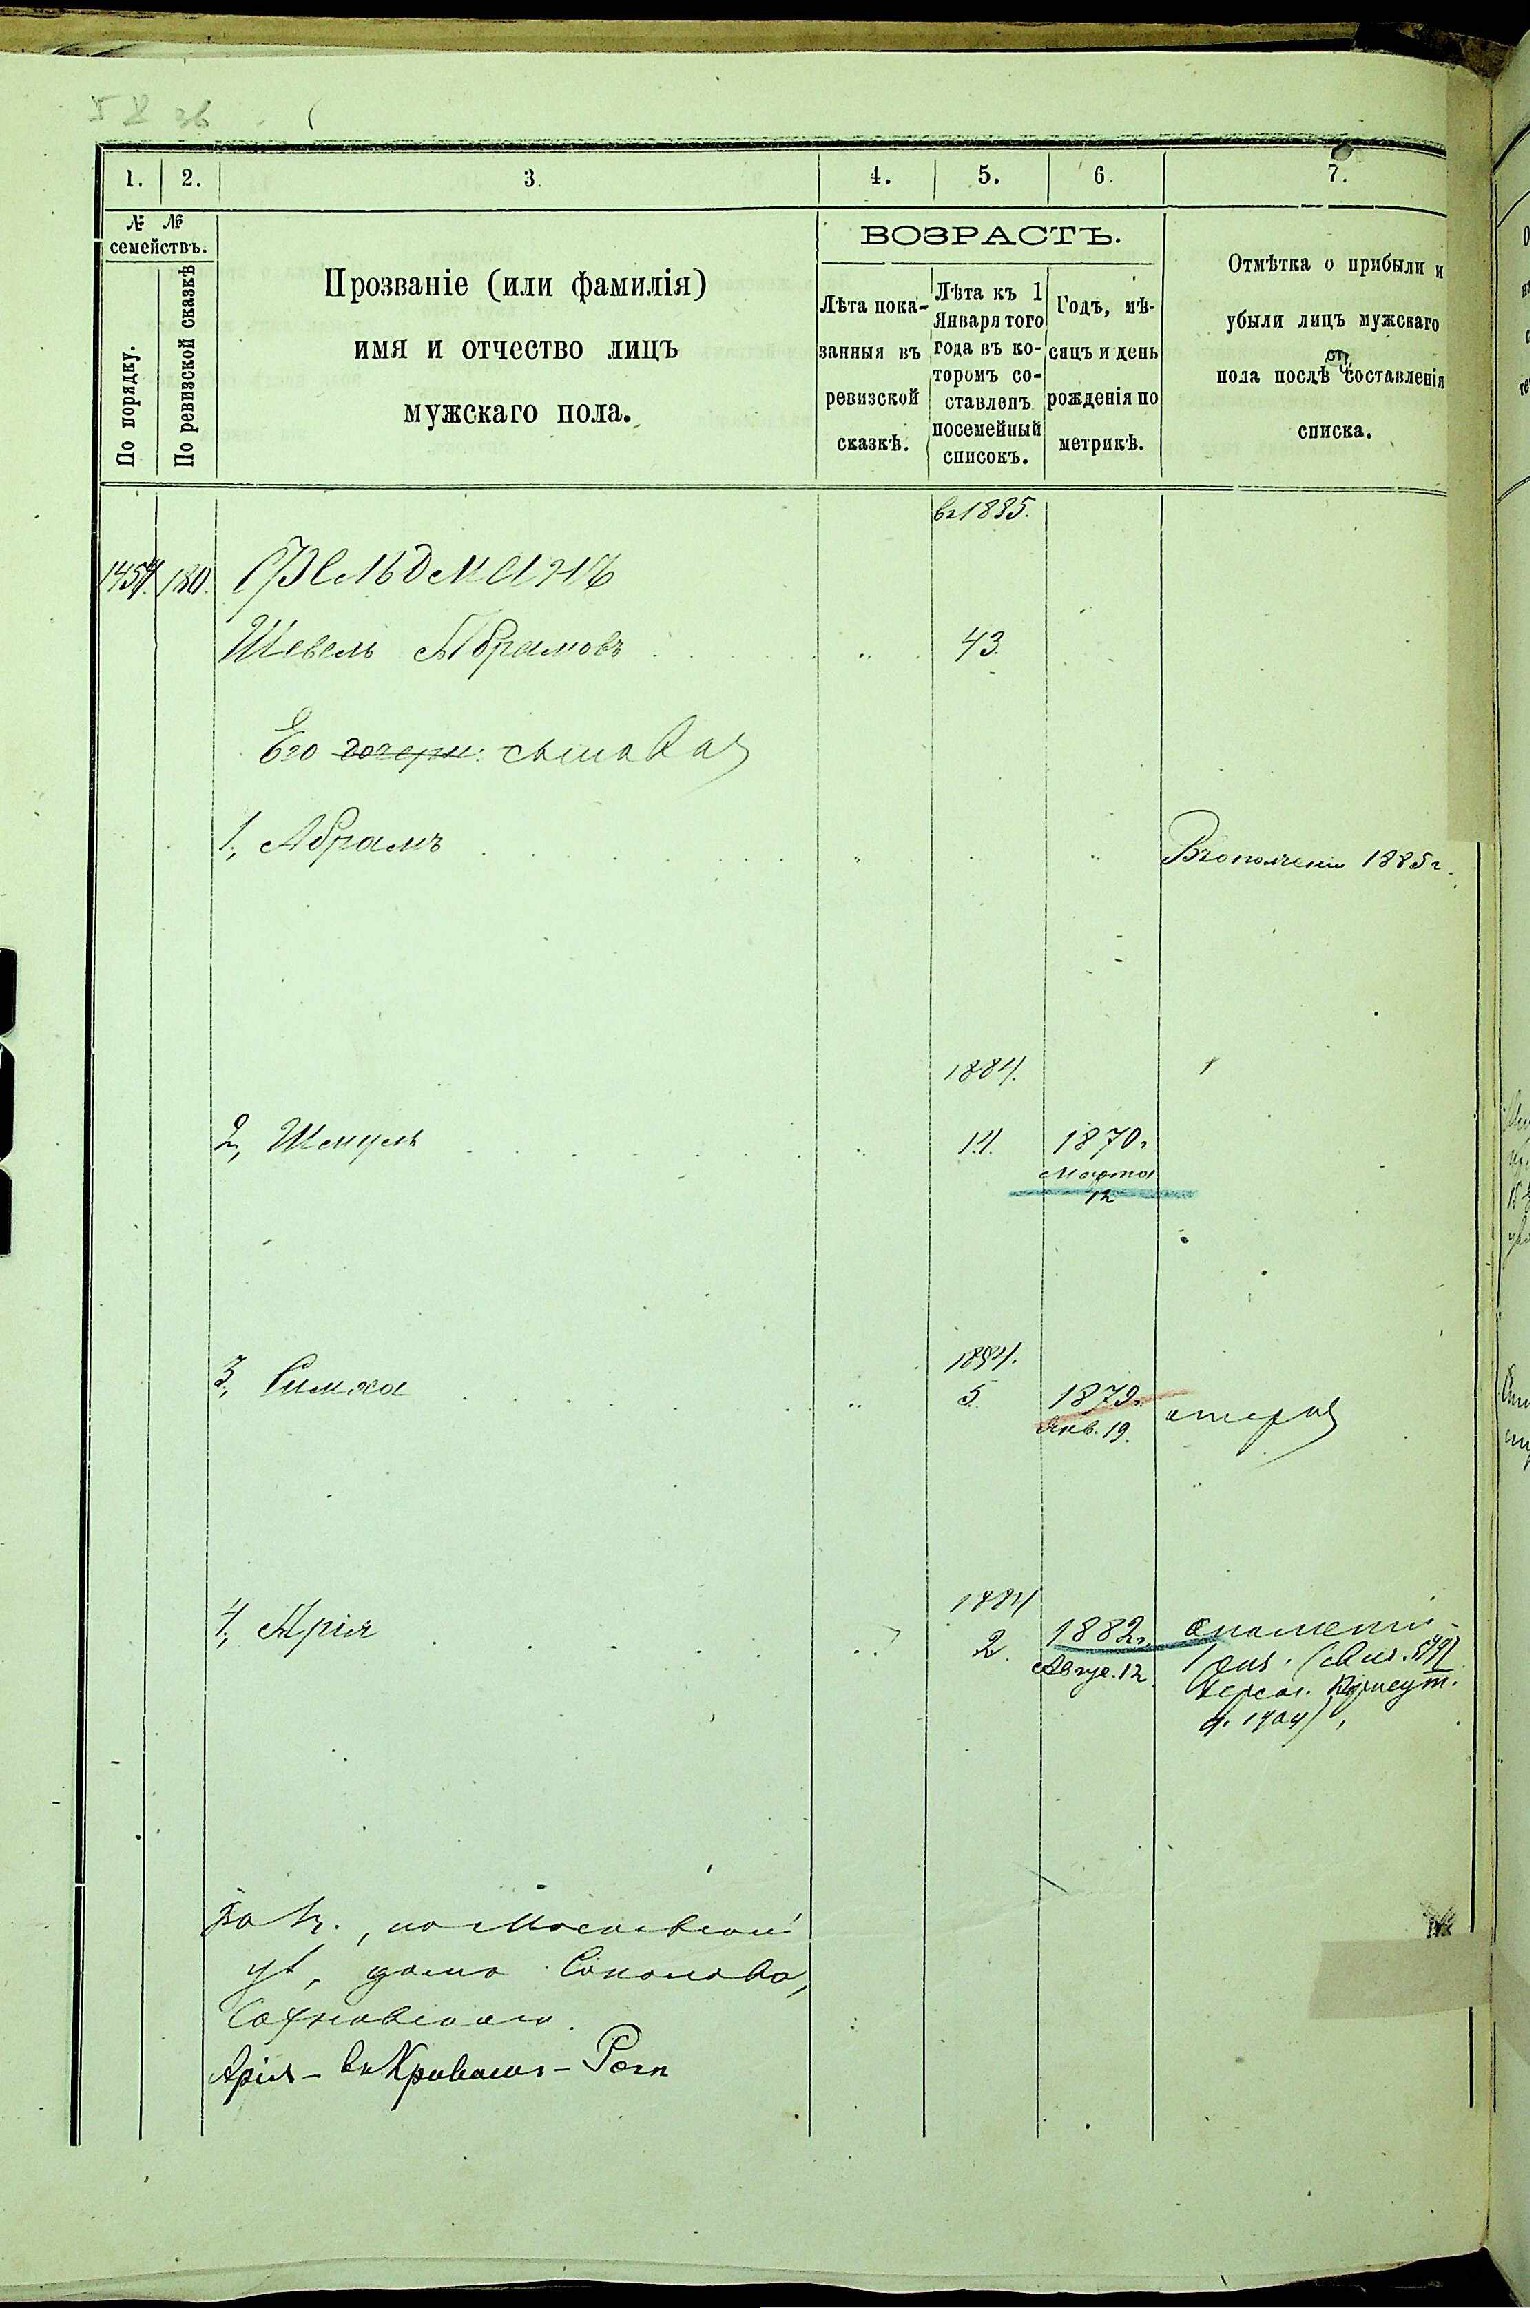 1. 2. 3. 4. 5. 6. 7.
№ №
семействъ.
По порядку.
По ревизской сказкѣ
Прозваніе (или фамилія)
имя и отчество лицъ
мужскаго пола.
ВОЗРАСТЪ.
Лѣта пока-
занныя въ
ревизской
сказкѣ.
Лѣта къ 1
Января того
года въ ко-
торомъ со-
ставленъ
посемейный
списокъ.
Годъ, мѣ-
сяцъ и день
рожденія по
метрикѣ.
Отмѣтка о прибыли и
убыли лицъ мужскаго
пола послѣ составленія
списка.
въ 1885.
1454. 180. Фельдманъ
Шевель Абрамовъ 43
Его дочери: сыновья
1, Абрамъ Въ ополченіи 1885 г.
1884.
2, Шмуль 14. 1870 г.
Марта
12
1884.
3, Симха 5. 1879 г. умеръ
Янв. 19.
1884
4, Арія 2. 1882 г.
Авгус. 12.
по Московской
ул, домъ Соколова,
Арія - въ Кривомъ - Рогѣ